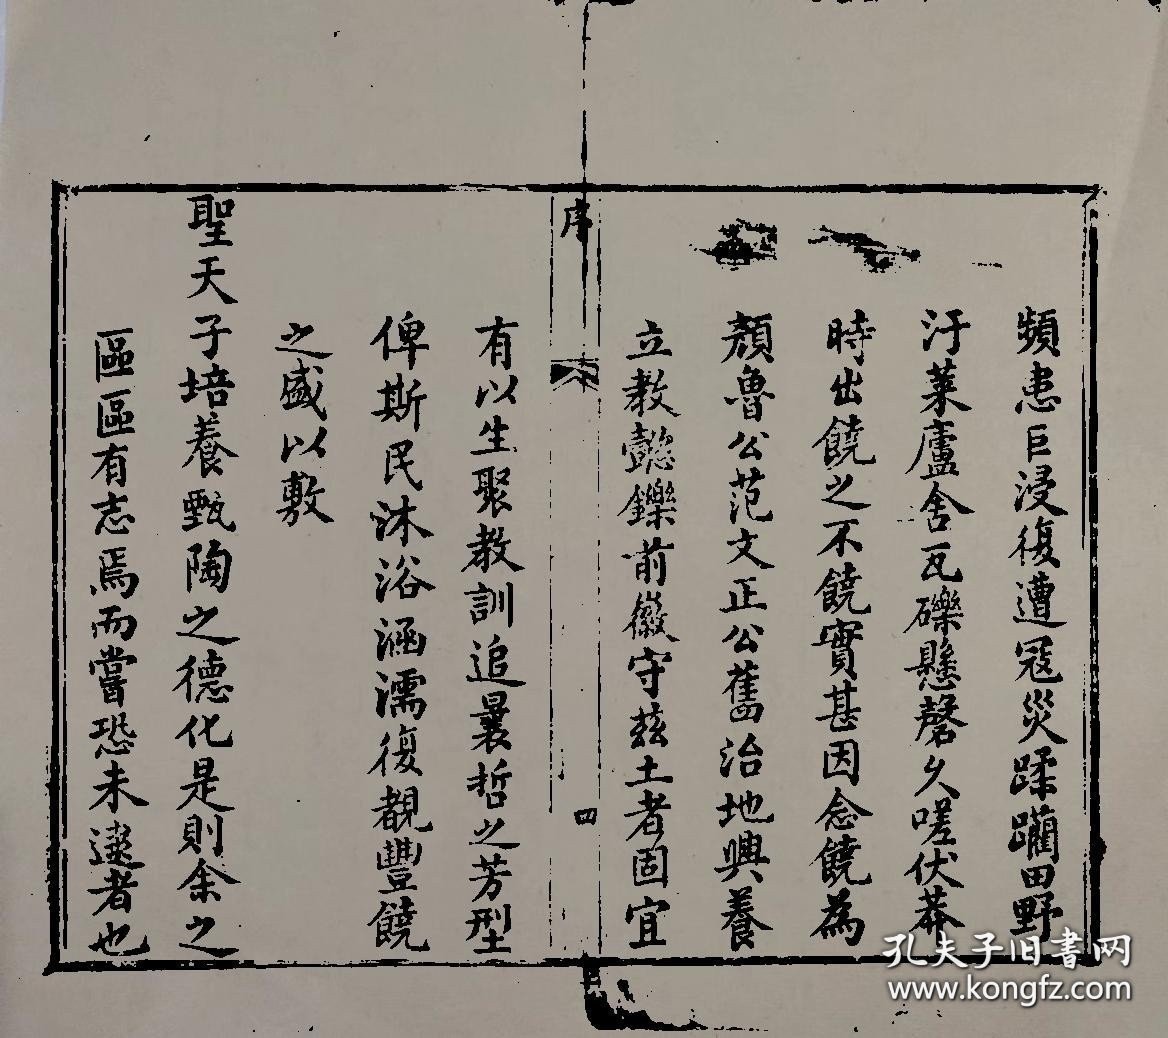 頻患巨浸復遭寇災蹂躪田野
汙萊廬舍瓦礫懸磬久嗟伏莽
時出饒之不饒實甚因念饒為
顏魯公范文正公舊治地興養
立教懿鑠前徽守茲土者固宜
序
四
有以生聚教訓追曩哲之芳型
俾斯民沐浴涵濡復覩豐饒
之盛以敷
聖天子培養甄陶之德化是則余之
區區有志焉而嘗恐未逮者也
孔夫子旧書网
www.kongfz.com